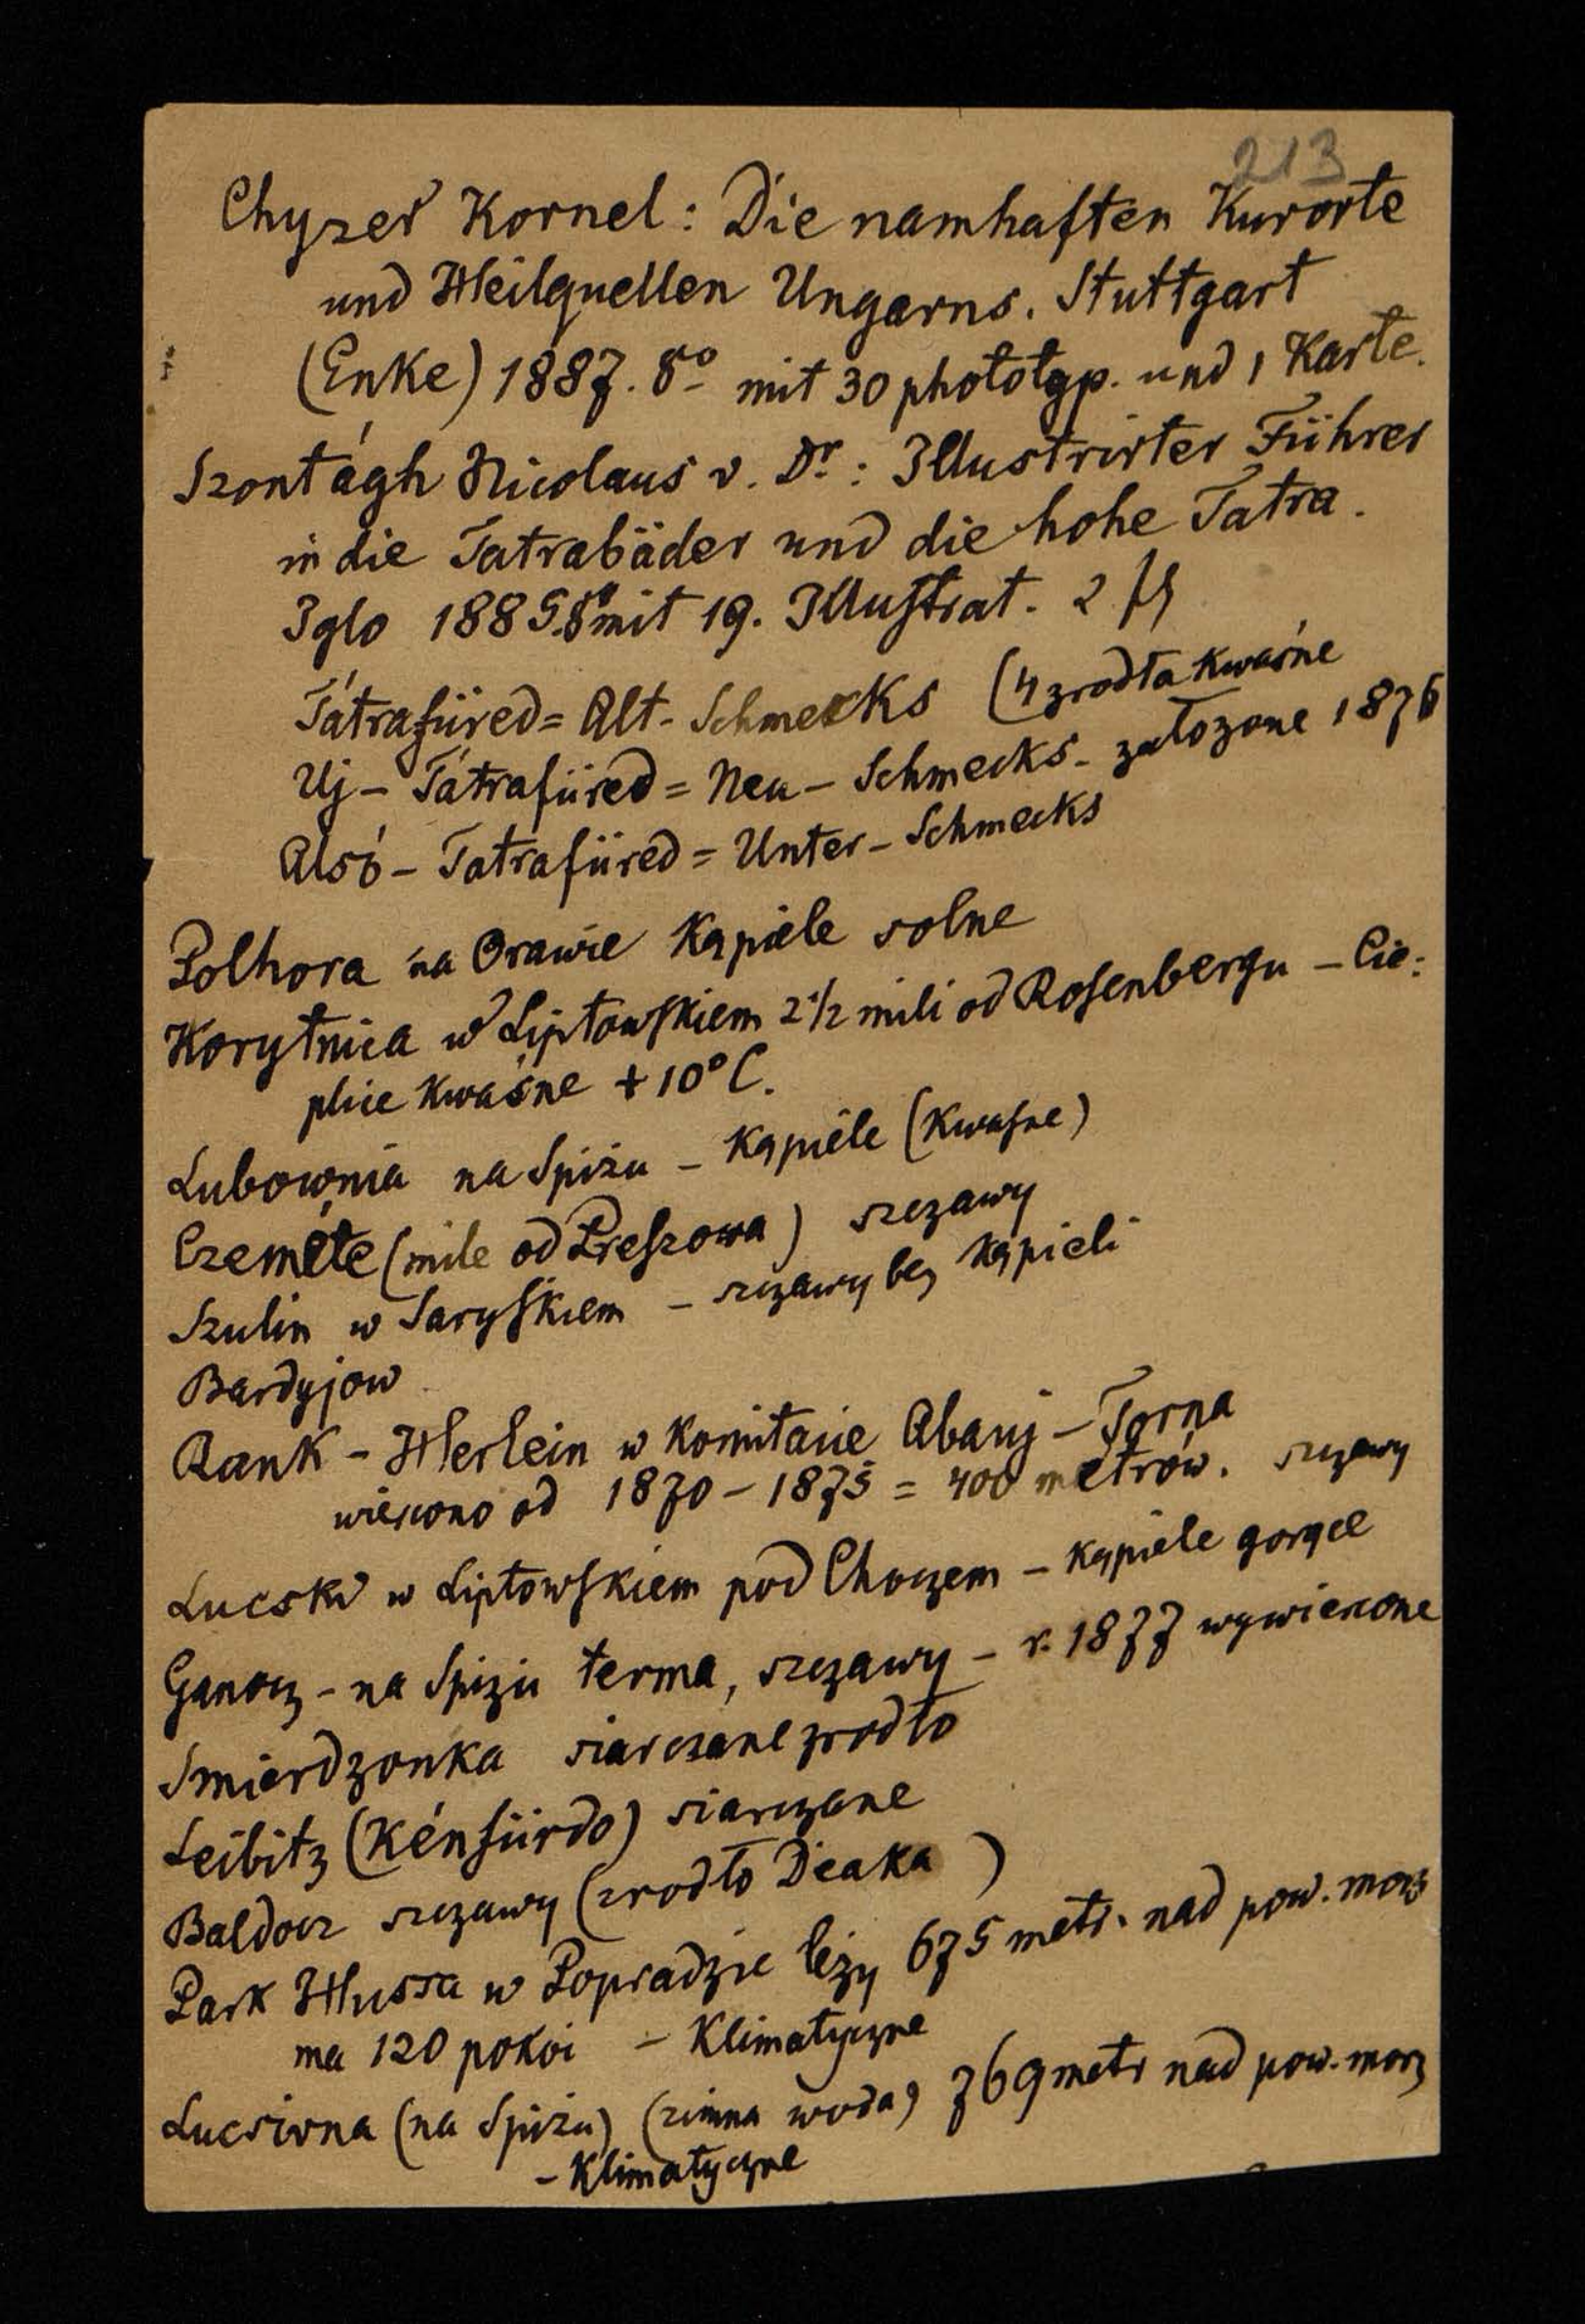 213
Chyzer Kornel: Die namhaften Kurorte
und Heilquellen Ungarns. Stuttgart
(Enke) 1887. 8o mit 30 phototyp. und 1 Karte.
Szontágh Nicolaus v. Dr.: Illustrirter Führer
in die Tatrabäder und die hohe Tatra.
Iglo 1885. 8o mit 19. Illustrat. 2 fl
Tátrafüred = Alt-Schmecks (4 zrodła kwaśne
Uj-Tátrafüred = Neu-Schmecks - założone 1876
Alsó-Tatrafüred = Unter-Schmecks
Polhora na Orawie Kąpiele solne
Korytnica w Liptowskiem 2 1/2 mili od Rosenbergu - Cie:
plice kwaśne +10°C.
Lubownia na Spiżu - Kąpiele (kwasne)
Czeméte (mile od Preszowa) szczawy
Szulin w Saryskiem - szczawy bez kąpieli
Bardyjow
Rank-Herlein w komitacie Abauj-Torna
wiercono od 1870-1875 = 400 metrów. szczawy
Lucski w Liptowskiem pod Choczem - kąpiele gorące
Ganocz - na Spiżu terma, szczawy - r. 1877 wywiercone
Smierdzonka siarczane zrodło
Leibitz (Kénfürdo) siarczane
Baldocz szczawy (zrodło Deaka)
Park Hussa w Popradzie leży 675 metr. nad pow. morz
ma 120 pokoi - Klimatyczne
Lucsivna (na Spiżu) (zimna woda) 769 metr nad pow. morz
- Klimatyczne